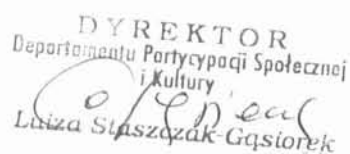 DYREKTOR
Departamentu Partycypacji Społecznej
i Kultury
Luiza Staszczak-Gąsiorek